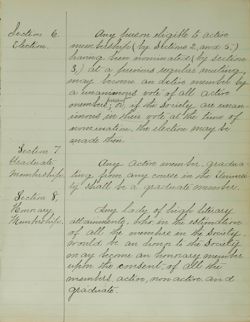 Section 6.
Election.
Any person eligible to active
membership (by Sections 2, and 5.)
having been nominated (by section
3,) at a previous regular meeting
may become an active member by
a unanimous vote of all active
members, or, if the Society are unan-
imous in their vote at the time of
nomination, the election may be
made then.
Section 7.
Graduate
Membership.
Any active member, gradua-
ting from any course in the Univer-
ity shall be a graduate member.
Section 8.
Honorary
Membership.
Any lady of high literary
attainments, who in the estimation
of all the members in the Society
would be an honor to the Society
may become an honorary member
upon the consent, of all the
members, active, non-active and
graduate.